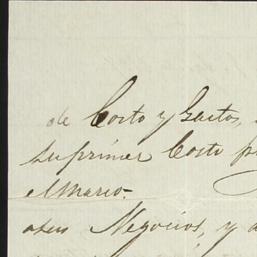 de Costo y Gastos,
suprimer Costo
el marco.
Negocios, y